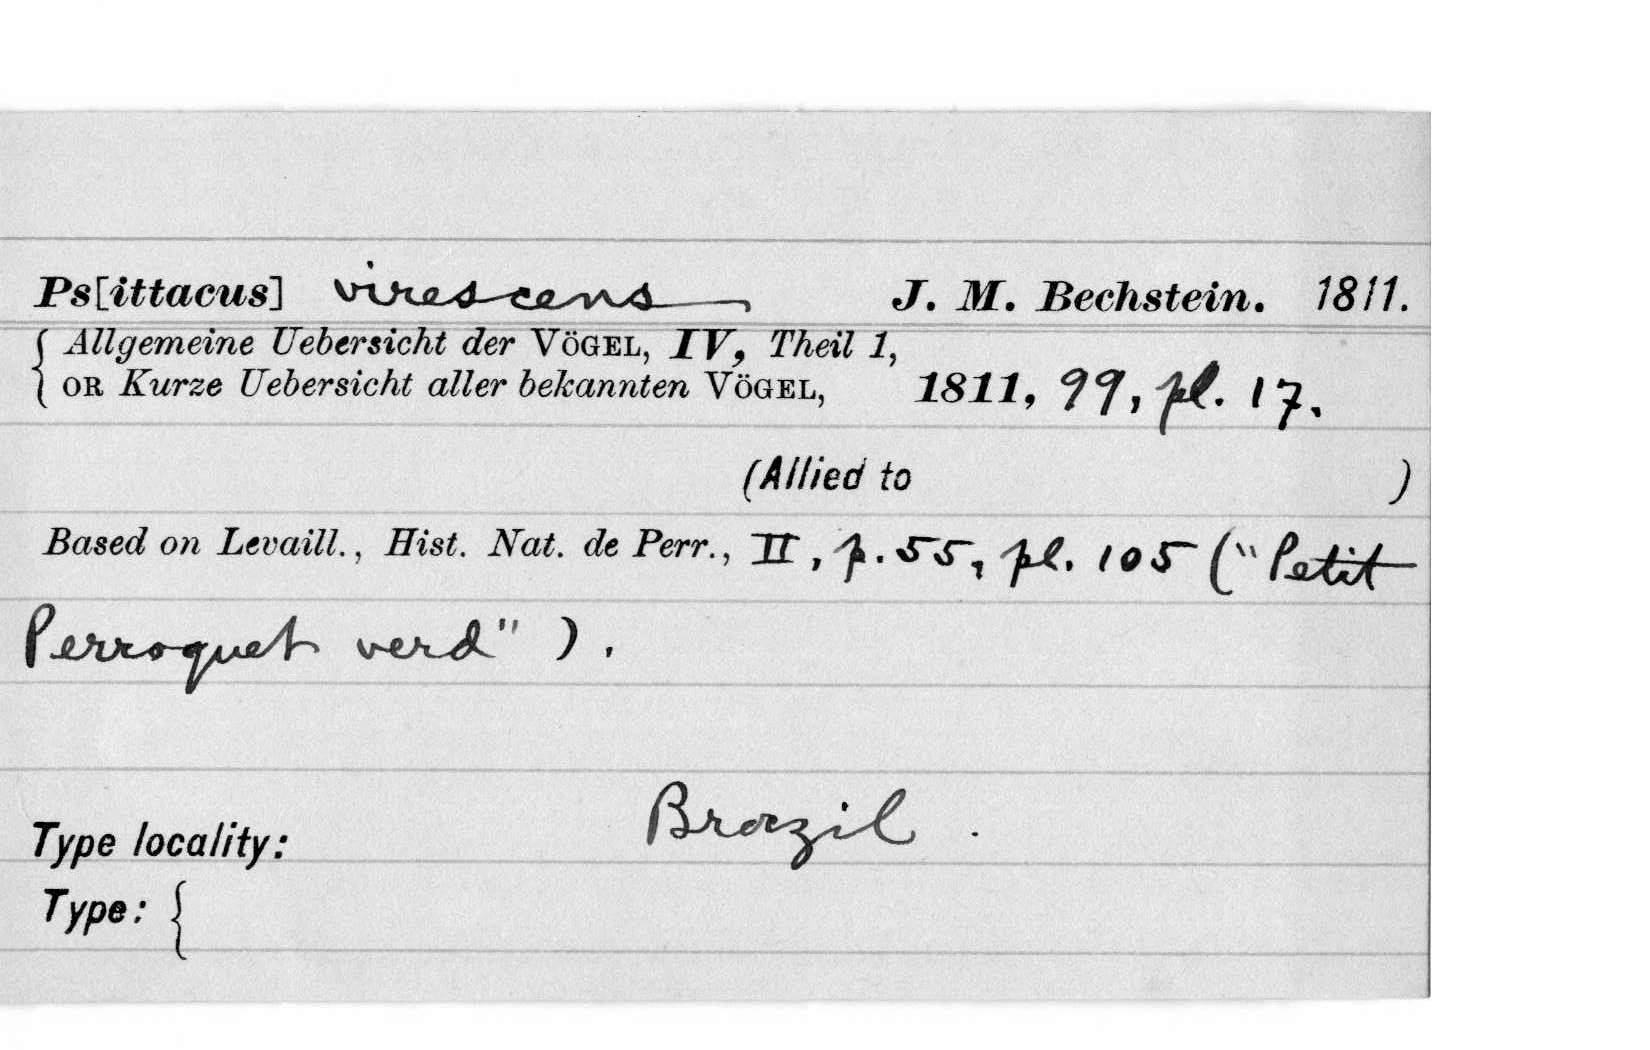 Ps[ittacus] virescens J. M. Bechstein. 1811.
{ Allgemeine Uebersicht der VÖGEL, IV, Theil 1,
{ OR Kurze Uebersicht aller bekannten VÖGEL, 1811, 99, pl. 17.
(Allied to )
Based on Levaill., Hist. Nat. de Perr., II, p. 55, pl. 105 ("Petit
Perroquet verd").
Type locality: Brazil.
Type: {